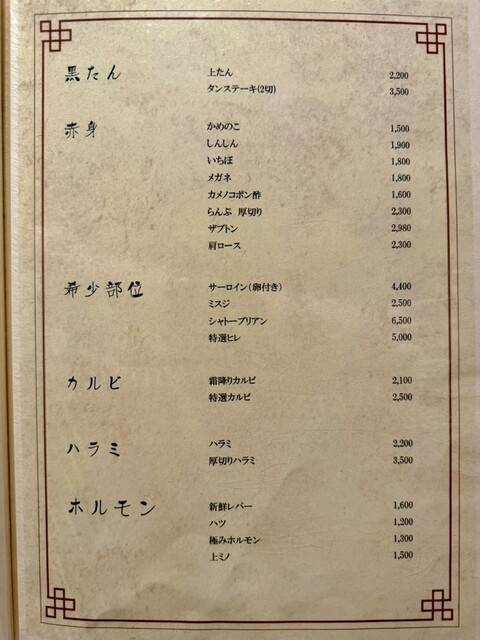 黒たん 上たん 2,200
タンステーキ(2切) 3,500
赤身 かめのこ 1,500
しんしん 1,900
いちぼ 1,800
メガネ 1,800
カメノコポン酢 1,600
らんぷ 厚切り 2,300
ザブトン 2,980
肩ロース 2,300
希少部位 サーロイン(卵付き) 4,400
ミスジ 2,500
シャトーブリアン 6,500
特選ヒレ 5,000
カルビ 霜降りカルビ 2,100
特選カルビ 2,500
ハラミ ハラミ 2,200
厚切りハラミ 3,500
ホルモン 新鮮レバー 1,600
ハツ 1,200
極みホルモン 1,300
上ミノ 1,500